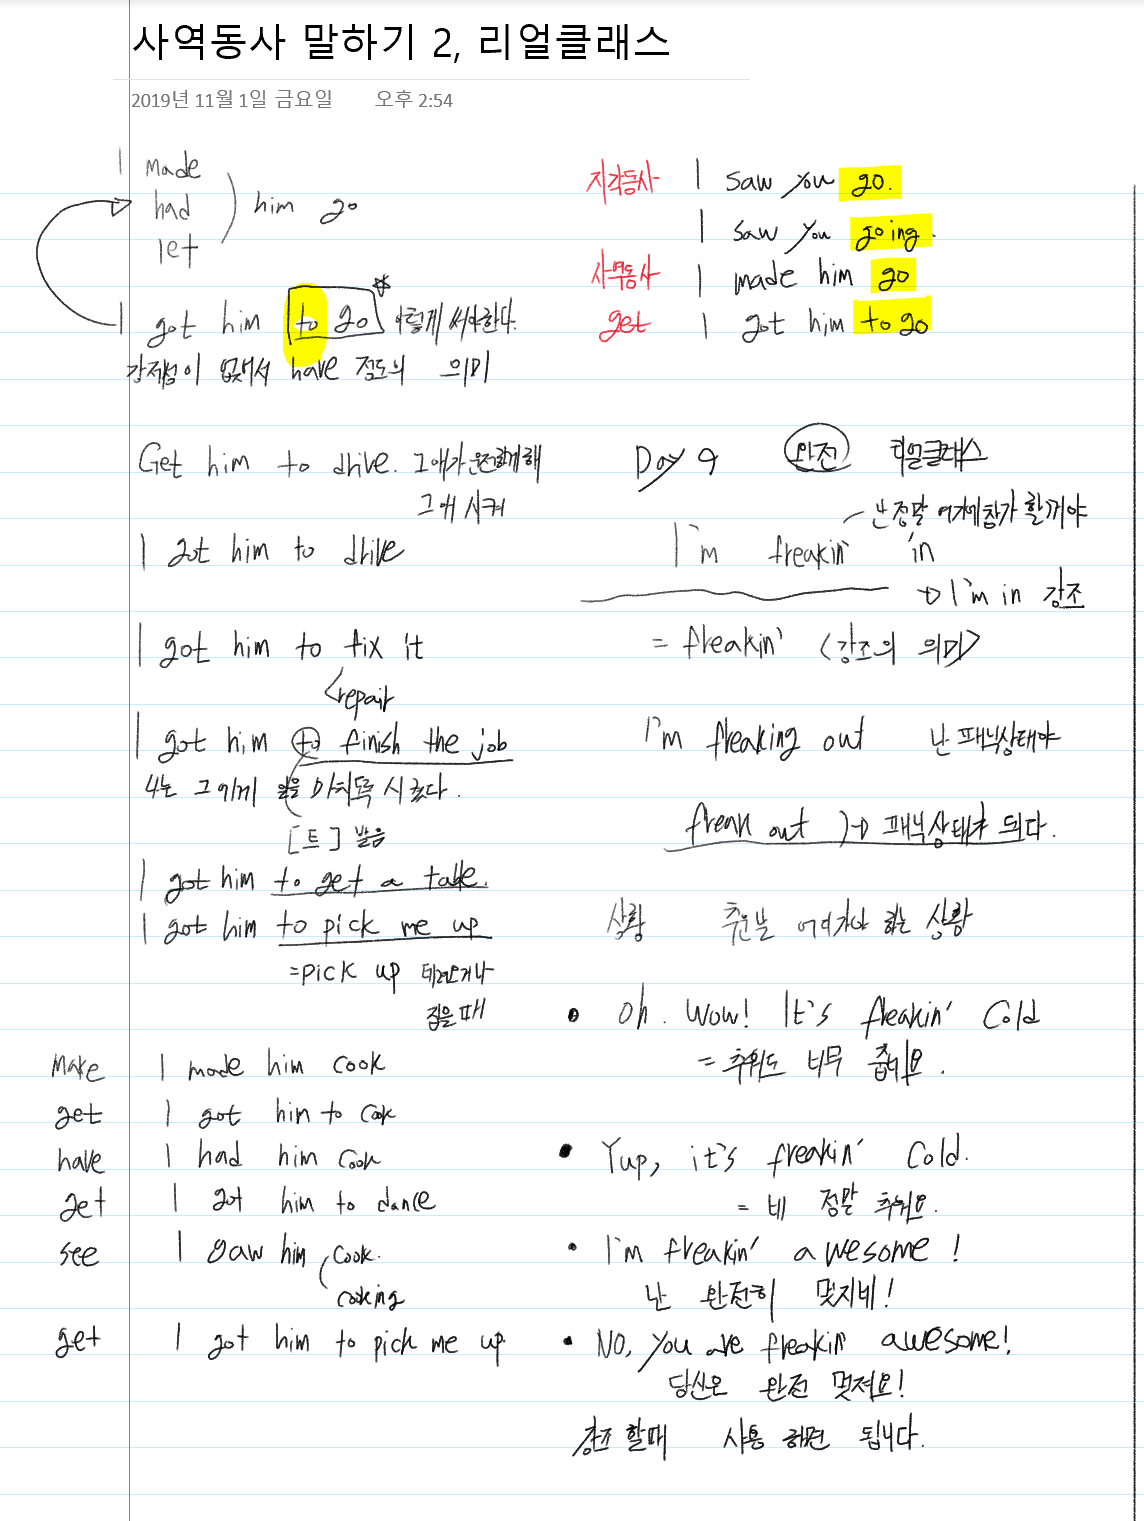 사역동사 말하기 2, 리얼클래스
2019년 11월 1일 금요일 오후 2:54
I made
had
let
him go
I got him to go 이렇게 써야한다.
강제성이 없어서 have 정도의 의미
지각동사 I saw you go.
I saw you going.
사역동사 I made him go
get I got him to go
Get him to drive. 그애가 운전하게 해
그애 시켜
I got him to drive
I got him to fix it
repair
I got him to finish the job
나는 그에게 일을 마치도록 시켰다.
[트] 발음
I got him to get a table.
I got him to pick me up
=pick up 데려오거나
집을때
Make I made him cook
get I got him to cook
have I had him cook
get I got him to dance
see I saw him cook.
cooking
get I got him to pick me up
Day 9 완전 리얼클래스
난 정말 여기에 참가 할꺼야
I'm freakin' in
→ I'm in 강조
= freakin' <강조의 의미>
I'm freaking out 난 패닉상태야
freak out → 패닉상태가 되다.
상황 추운날 어디가야 하는 상황
• Oh. Wow! It's freakin' Cold
= 추워도 너무 춥네요.
• Yup, it's freakin' Cold.
= 네 정말 추워요.
• I'm freakin' awesome!
난 완전히 멋지네!
• NO, you are freakin' awesome!
당신은 완전 멋져요!
강조 할때 사용 하면 됩니다.